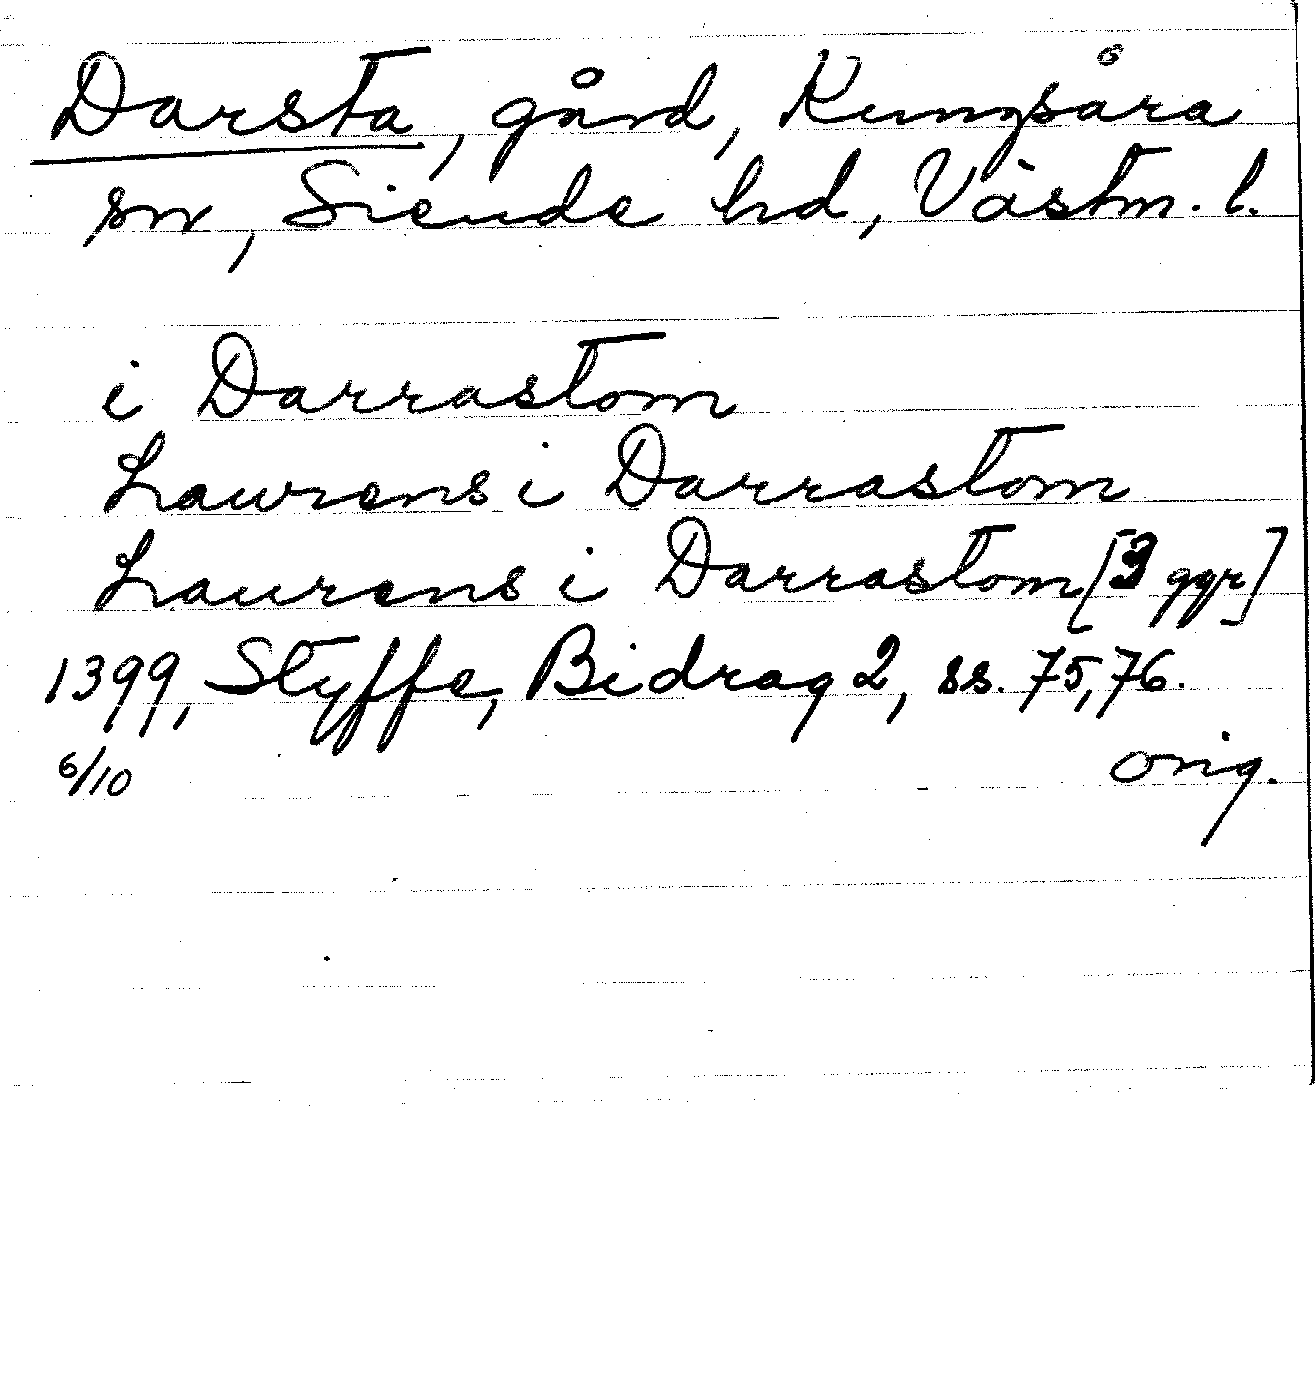 Darsta, gård, Kungsåra
sn, Siende hd, Västm. l.
i Darrastom
Lawrens i Darrastom
Laurens i Darrastom [3 ggr]
1399, Styffe, Bidrag 2, ss. 75, 76.
6/10 orig.